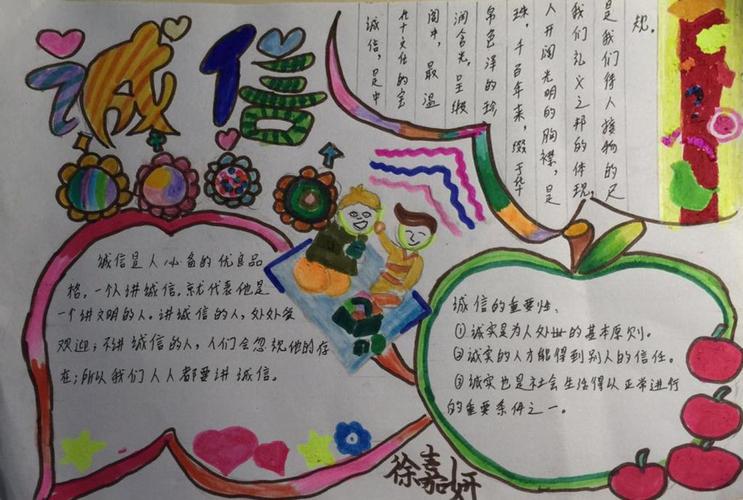 诚信
诚信，是中
在千文化的宝
阁中，最温
润含光，呈缎
帛色泽的珍
珠，千百年来，缀于华
人开阔光明的胸襟，是
我们礼义之邦的体现，
是我们待人接物的尺
规。
诚信是人必备的优良品
格，一个人讲诚信，就代表他是
一个讲文明的人。讲诚信的人，处处受
欢迎；不讲诚信的人，人们会忽视他的存
在；所以我们人人都要讲诚信。
诚信的重要性、
①诚实是为人处世的基本原则。
②诚实的人才能得到别人的信任。
③诚实也是社会生活得以正常进行
的重要条件之一。
徐嘉妍